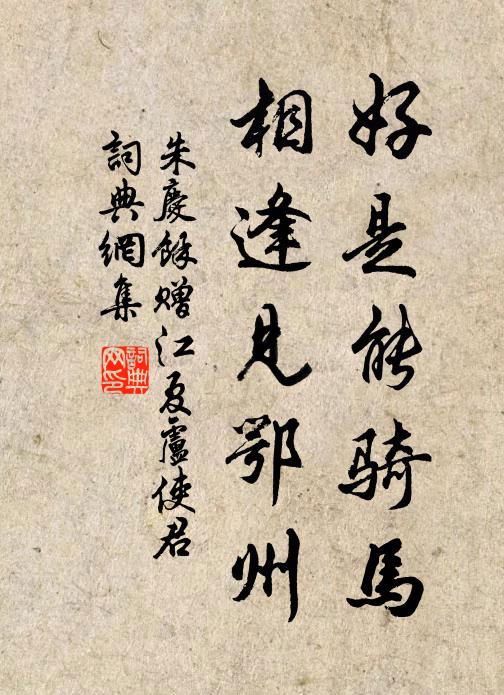 好是能骑馬
相逢見鄂州
朱慶餘贈江夏盧使君
詞典網集
詞典网印